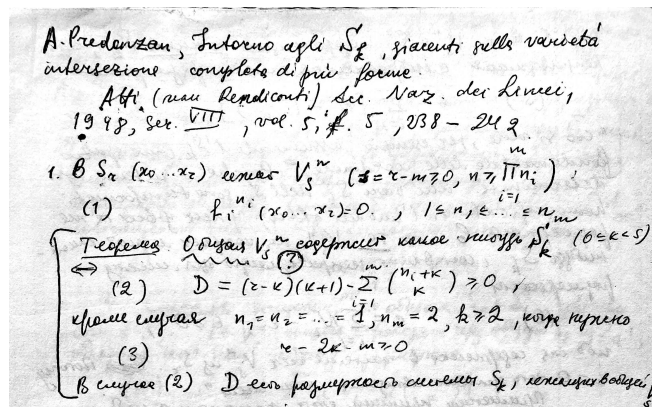 A. Predonzan, Intorno agli S_k, giacenti sulla varietá
intersezione completa di più forme
Atti (reau Rendiconti) Acc. Naz. dei Lincei,
1948, ser. VIII, vol. 5, f. 5, 238 – 242.
1. В S_r (x_0 ... x_r) лежит V_s^n (s = r-m ≥ 0, n = ∏_{i=1}^{m} n_i) :
(1) f_i^{n_i} (x_0 ... x_r) = 0. , 1 ≤ n_1 ≤ ... ≤ n_m
Теорема. Общая V_s^n содержит какое нибудь S_k (0 ≤ k ≤ s)
⟷ ?
(2) D = (r-k)(k+1) - ∑_{i=1}^{m} (n_i+k k) ≥ 0,
кроме случая n_1 = n_2 = ... = 1, n_m = 2, k ≥ 2, когда нужно
(3) r - 2k - m ≥ 0
В случае (2) D есть размерность системы S_k, лежащих в общей V_s